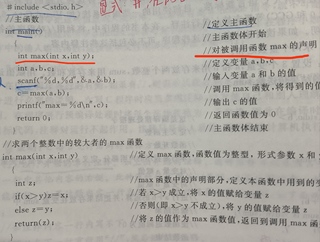 #include <stdio.h>
//主函数
int main() //定义主函数
//主函数体开始
int max(int x,int y); //对被调用函数 max 的声明
int a,b,c; //定义变量 a,b,c
scanf("%d,%d",&a,&b); //输入变量 a 和 b 的值
c=max(a,b); //调用 max 函数,将得到的值
printf("max=%d\n",c); //输出 c 的值
return 0; //返回函数值为 0
//主函数体结束
//求两个整数中的较大者的 max 函数
int max(int x,int y) //定义 max 函数,函数值为整型,形式参数 x 和
int z; //max 函数中的声明部分,定义本函数中用到的变
if(x>y)z=x; //若 x>y 成立,将 x 的值赋给变量 z
else z=y; //否则(即 x>y 不成立),将 y 的值赋给变量 z
return(z); //将 z 的值作为 max 函数值,返回到调用 max 函